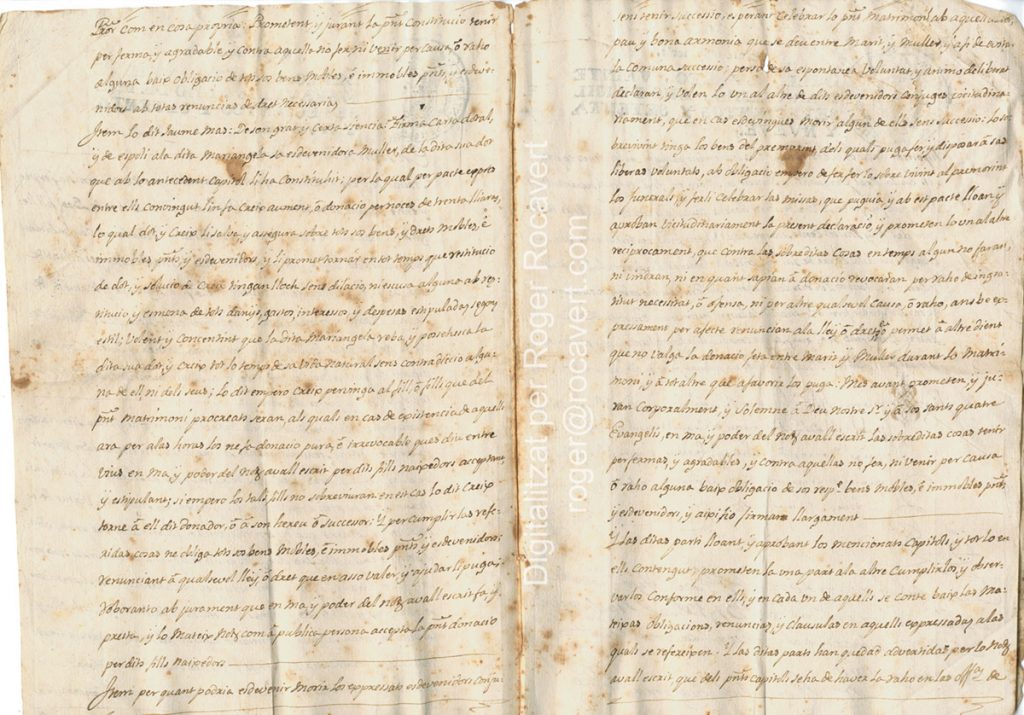 Pror com en cosa propria: Prometent, y jurant la pnt Constitucio tenir
per ferma, y agradable, y contra aquella no fer ni venir per causa, ó raho
alguna baix obligacio de tots sos bens Mobles, é immobles pnts, y esdeve-
nidors ab totas renuncias de dret necesarias
Item lo dit Jaume Mas: De son grat y Certa siencia: Firma Carta dotal,
y de espoli á la dita Mariangela sa esdevenidora Muller, de la dita sua dot
que ab lo antecedent Capitol li ha Constituhit; per la qual per pacte expres
entre ells convingut li fa Creix aument, ó donacio per noces de trenta lliures,
lo qual dot, y Creix li salva, y assegura sobre tots sos bens, y drets Mobles, é
immobles pnts y esdevenidors, y li promet tornar en tot temps que restitucio
de dot, y solucio de Creix tingan lloch sens dilacio, ni escusa alguna ab res-
titucio, y esmena de tots danys, gastos interessos, y despesas estipuladas segons
estil; Volent y Concentint que la dita Mariangela reba, y possehesca la
dita sua dot, y Creix tot lo temps de sa vida Natural sens contradiccio algu-
na de ell ni dels seus; lo dit empero Creix pervinga al fill, ó fills que del
pnt Matrimoni procreats seran, als quals en cas de existencia de aquells
ara per alas horas los ne fa donacio pura, é irrevocable ques diu entre
vius en ma, y poder del Notari avall escrit per dits fills naixedors acceptant,
y estipulant; si empero los tals fills no sobreviuran en eit cas lo dit Creix
torne á ell dit donador, ó á son hereu ó Successor: Y per cumplir las refe-
ridas cosas ne obliga tots sos bens Mobles, é immobles pnts, y esdevenidors
renunciant á qualsevol lley, ó dret que en asso valer, y ajudar li puga,
roborantо ab jurament que en ma, y poder del Notari avall escrit fa, y
presta, y lo Mateix Notari com á publica persona accepta la pnt donacio
per dits fills naixedors
Item per quant podria esdevenir Morir los expressats esdevenidors Conju-
sens tenir successio, esperant Celebrar lo pnt Matrimoni ab aquella
pau, y bona armonia que se deu entre Marit, y Muller, y á fi de evitar
la Comuna successio; perso de sa espontanea Voluntat, y animo deliberat
declaran, y volen lo un al altre de dits esdevenidors Conjuges vicitudina-
riament, que en cas esdevingues Morir algun de ells sens Successio: lo so-
brevivint tinga los bens del premorint dels quals puga fer, y disposar á sas
liberas voluntats, ab obligacio empero de fer fer lo sobrevivint al premorint
los funerals, y ferli Celebrar las missas, que puguia, y ab est pacte lloan y
aproban vicituditariament la present declaracio, y prometen lo un al altre
reciprocament, que contra las sobreditas Cosas en temps algun no faran,
ni vindran, ni en quant sapian á donacio revocaran per raho de ingra-
titut necesitat, ó ofensa, ni per altre qualsevol Causa, ó raho, ans be ex-
pressament per á fecte renuncian á la lley ó dret que permet á altre dient
que no valga la donacio feta entre Marit, y Muller durant lo Matri-
moni, y á tot altre que á favorir los puga: Mes avant prometen, y ju-
ran Corporalment, y Solemne á Deu Nostre Sr. y á sos sants quatre
Evangelis, en ma, y poder del Notari avall escrit las sobreditas cosas tenir
per fermas, y agradables, y contra aquellas no fer, ni venir per causa
ó raho alguna baix obligacio de sos resp. bens Mobles, é immobles pnts,
y esdevenidors, y aixi ho firman llargament
Y las ditas parts lloant, y aprobant los mencionats Capitols, y tot lo en
ells Contengut prometen la una part á la altre Cumplirlos, y obser-
varlos Conforme en ells, y en cada un de aquells se conte baix las Ma-
teixas Obligacions, renuncias, y Clausulas en aquells expressadas, á las
quals se refereixen. Y las ditas parts han quedat advertidas per lo Notari
avall escrit, que dels pnts Capitols se ha de haver la raho en las Offas. de
Digitalitzat per Roger Rocavert
roger@rocavert.com